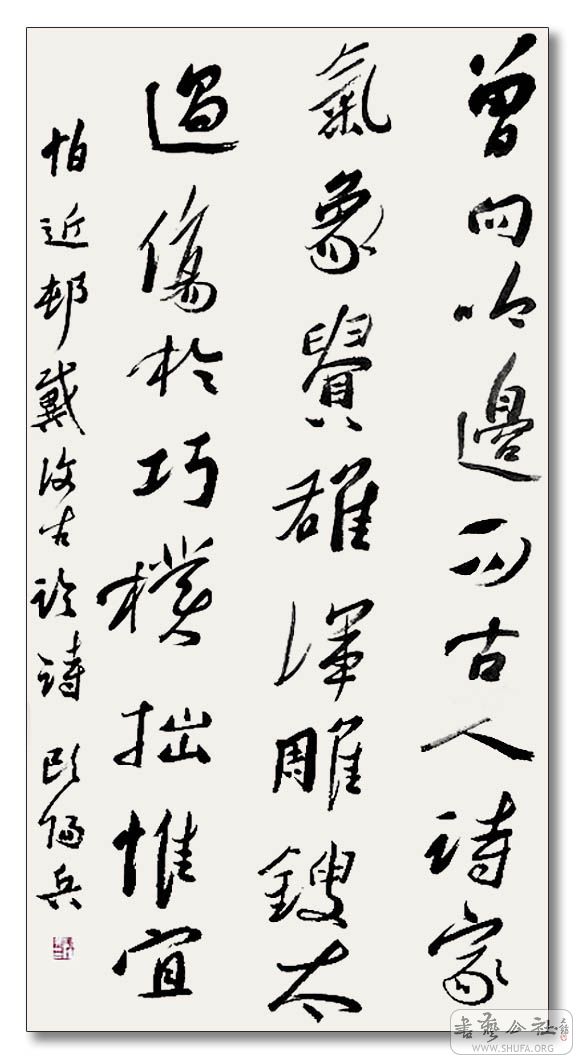 曾向吟邊問古人詩家
氣象貴雄渾雕鎪太
過傷於巧樸拙惟宜
怕近邨戴復古論詩 歐陽兵
書藝公社
WWW.SHUFA.ORG